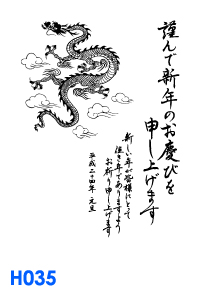 謹んで新年のお慶びを
申し上げます
新しい年が皆様にとって
佳き年でありますよう
お祈り申し上げます
平成二十四年 元旦
H035